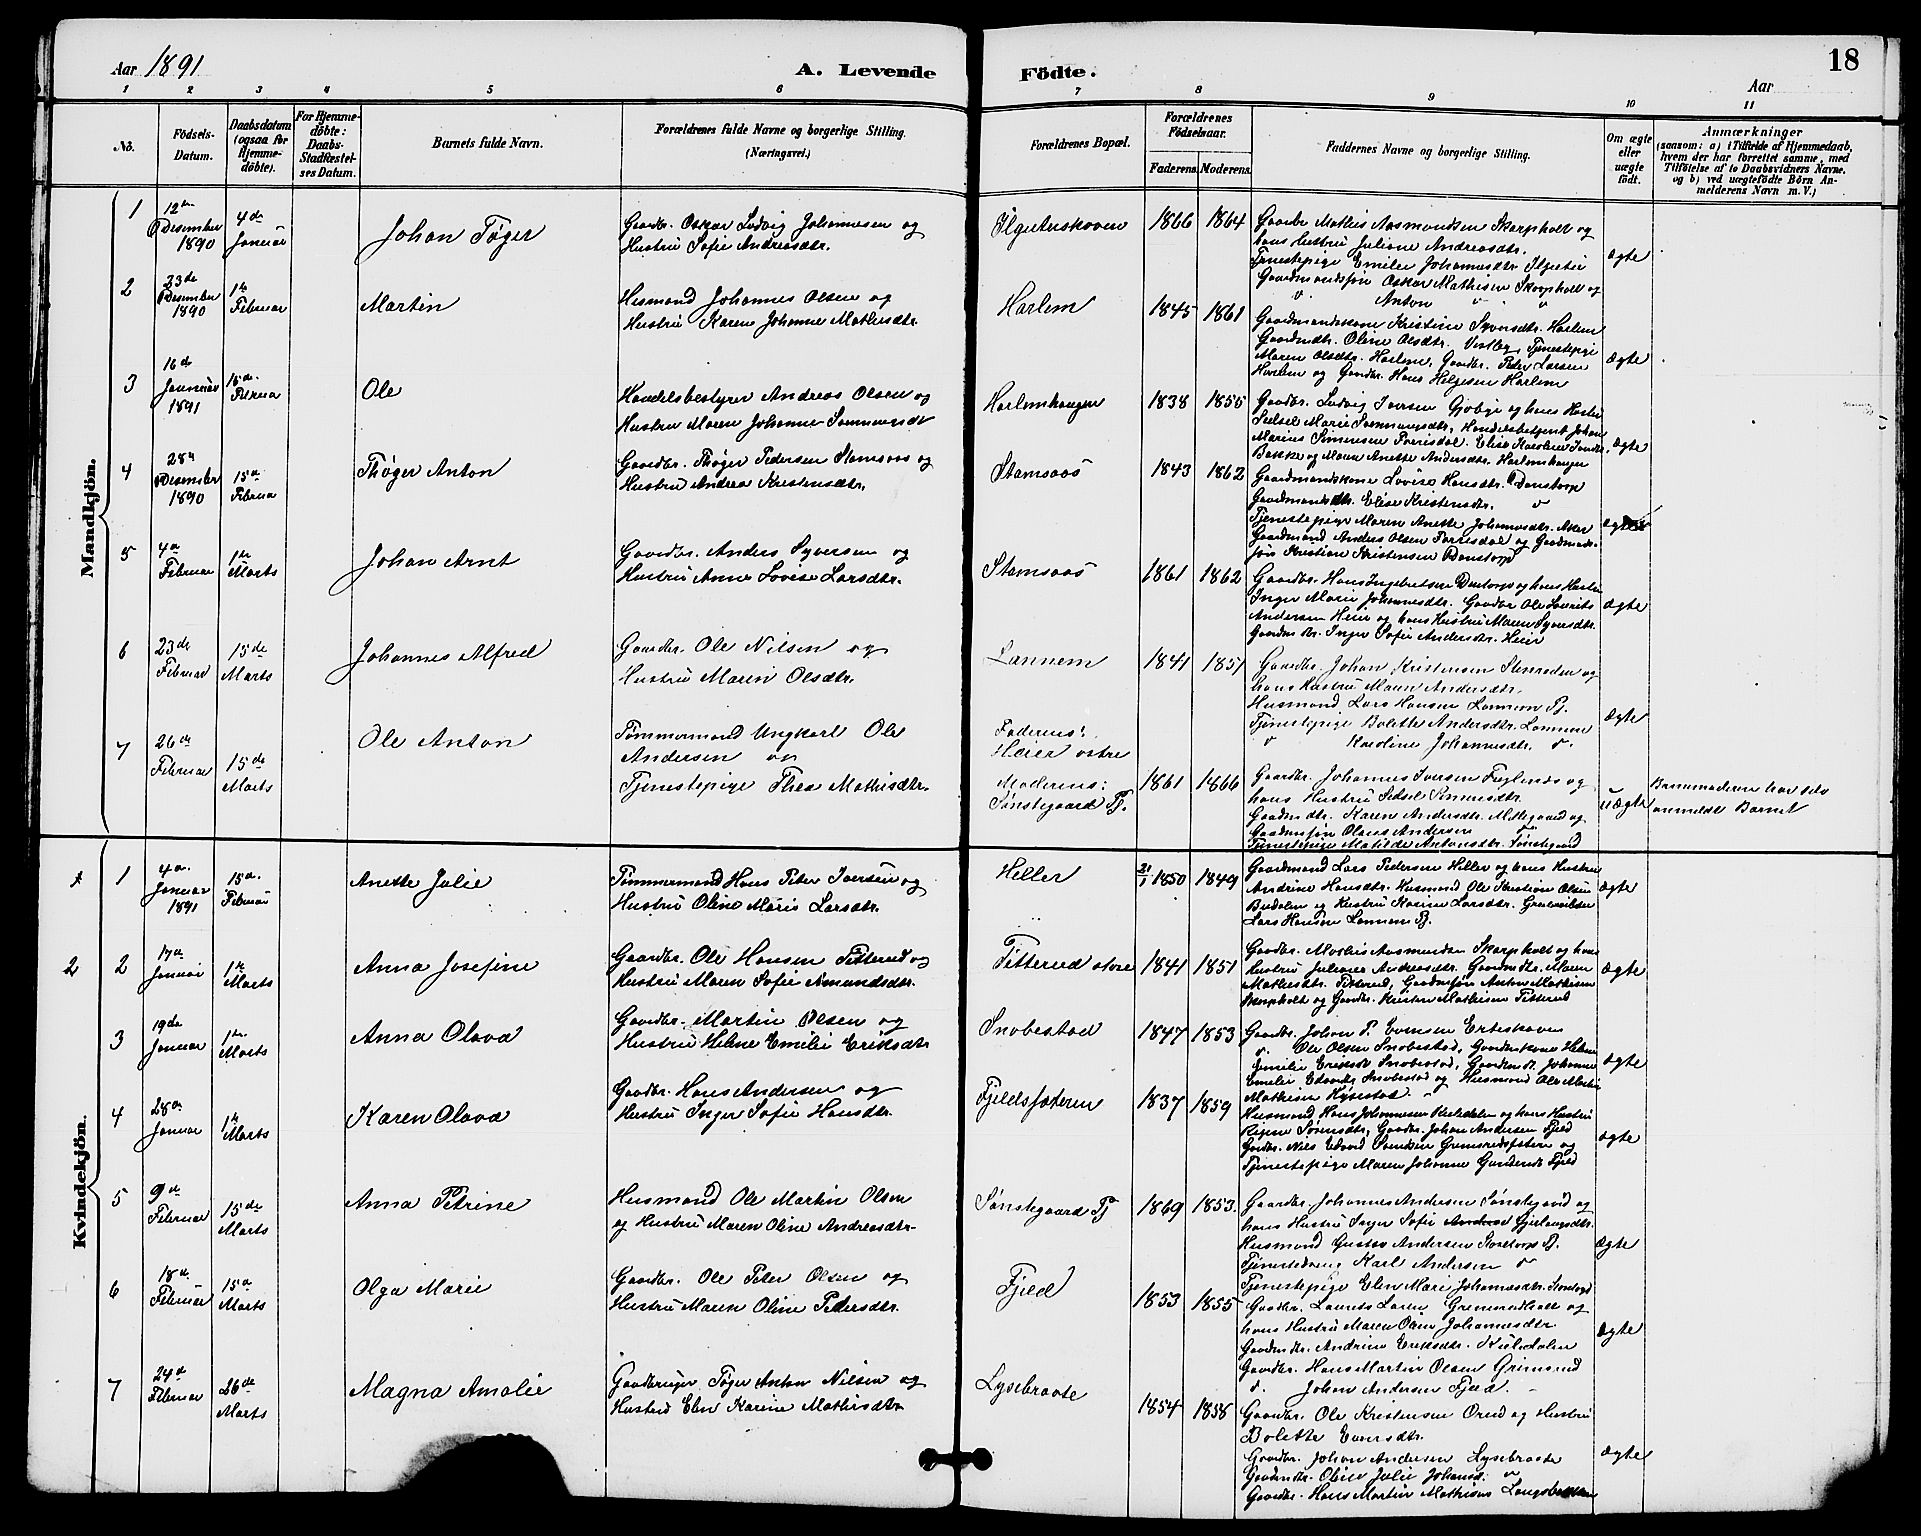 Aar 1891
A. Levende Födte.
Aar
18
1 2 3 4 5 6 7 8 9 10 11
No.
Födsels-Datum.
Daabsdatum (ogsaa for Hjemmedöbte).
For Hjemmedöbte: Daabs-Stadfæstelses Datum.
Barnets fulde Navn.
Forældrenes fulde Navne og borgerlige Stilling. (Næringsvei.)
Forældrenes Bopæl.
Forældrenes Födselsaar.
Faderens. Moderens.
Faddernes Navne og borgerlige Stilling.
Om ægte eller uægte födt.
Anmærkninger
(saasom: a) i Tilfælde af Hjemmedaab, hvem der har forrettet samme, med Tilföielse af to Daabsvidners Navne. og b) ved uægtefödte Börn Anmelderens Navn m. V.)
Mandkjön.
1 12te Desember 1890 4de Januar Johan Tøger
Gaardbr. Oskar Ludvig Johannesen og
Hustru Sofie Andreasdtr.
1866 1864
Gaardbr Mathis Aasmundsen Skarpholt og
hans Hustru Juliane Andreasdtr.
Tjenestepige Emilie Johannesdtr
Gaardmandsøn Oskar Mathisen Skarpholt og
" Anton " "
ægte
2 23de Desember 1890 1te Februar Martin
Husmand Johannes Olsen og
Hustru Karen Johanne Mathisdtr.
Harlem 1845 1861
Gaardmandskone Kristine Syversdtr. Harlem
Gaardmdtr. Oline Olsdtr. Vestby, Tjenestepige
Maren Olsdtr. Harlem, Gaardbr. Peter Larsen
Harlem og Gaardbr. Hans Helgesen Harlem
ægte
3 16de Januar 1891 15de Februar Ole
Handelsbestyrer Andreas Olsen og
Hustru Maren Johanne
Harlemhaugen 1838 1855
Gaardbr. Ludvig Iversen Gjøbye og hans Hustru
Sidsel Marie
Marius Simensen
Bakke og Maren Anette Andersdtr. Harlemhaugen
ægte
4 28de Desember 1890 15de Februar Thøger Anton
Gaardbr. Thøger Pedersen Stamsaas og
Hustru Andrea Kristensdtr.
Stamsaas 1843 1862
Gaardmandskone Lovise Hansdtr. Danstorp
Gaardmandsdtr. Elise Kristensdtr. "
Tjenestepige Maren Anette Johannesdtr. Aker
Gaardmand Anders Olsen
Kristian Kristensen Danstorp
ægte
5 4de Februar 1ste Marts Johan Arnt
Gaardbr. Anders Syversen og
Hustru Anne Lovise Larsdtr.
Stamsaas 1861 1862
Gaardbr. Hans Ingebretsen Danstorp og hans Hustru
Inger Marie Johannesdtr. Gaardbr Ole Laurits
Andersen Heier og hans Hustru Maren Syversdtr.
Gaardmdtr. Inger Sofie Andersdtr. Heier
ægte
6 23de Februar 15de Marts Johannes Alfred
Gaardbr. Ole Nilsen og
Hustru Maren Olsdtr.
Lannem 1841 1851
Gaardbr. Johan Kristensen Stenreden og
hans Hustru Maren Andersdtr.
Husmand Lars Hansen Lannem Pj.
Tjenestepige Bolette Andersdtr. Lannem
" Karoline Johannesdtr. "
ægte
7 26de Februar 15de Marts Ole Anton
Tømmermand Ungkarl Ole
Andersen og
Tjenestepige Thea Mathisdtr.
Faderens:
Heier østre
Moderens:
Sønstegaard Pj.
1861 1866
Gaardbr. Johannes Iversen Fuglenes og
hans Hustru Sidsel Simensdtr.
Gaardmdtr. Karen Andersdtr. Midtgaard og
Gaardmsøn Olaus Andersen "
Tjenestepige Matilde Antonsdtr. Sønstegaard
uægte
Barnemoderen har selv
anmeldt Barnet
Kvindekjön.
1 1 4de Januar 1891 15de Februar Anette Julie
Tømmermand Hans Peter Iversen og
Hustru Oline Marie Larsdtr.
Heller 21/1 1850 1849
Gaardmand Lars Pedersen Heller og hans Hustru
Andrine Hansdtr. Husmand Ole Kristian Olsen
Budalen og Hustru Karine Larsdtr.
Lars Hansen Lannem Pj.
ægte
2 2 17de Januar 1te Marts Anna Josefine
Gaardbr. Ole Hansen Fitterud og
Hustru Maren Sofie Amundsdtr.
Fitterud østre 1841 1851
Gaardbr. Mathis Aasmundsen Skarpholt og hans
Hustru Juliane Andreasdtr. Gaardmdtr. Maren
Mathisdtr. Fitterud, Gaardmsøn Anton Mathisen
Skarpholt og Gaardbr. Kristen Mathisen Fitterud
ægte
3 19de Januar 1te Marts Anna Olava
Gaardbr. Martin Olsen og
Hustru Helene Emilie Eriksdtr
Snobestad 1847 1853
Gaardbr. Johan P. Evensen Erteskoven
" Ole Olsen Snobestad, Gaardmkone Helene
Emilie Eriksdtr Snobestad, Gaardmdtr. Johanne
Emilie Snobestad og Husmand Ole Martin
Mathisen
ægte
4 28de Januar 1te Marts Karen Olava
Gaardbr. Hans Andersen og
Hustru Inger Sofie Hansdtr.
Fjeldsfæteren 1837 1859
Husmand Hans Johannesen og hans Hustru
Sørensdtr, Gaardbr. Johan Andersen Fjeld
Gardbr. Nils Edvard og
Tjenestepige Maren Johanne Fjeld
ægte
5 9de Februar 15de Marts Anna Petrine
Husmand Ole Martin Olsen
og Hustru Maren Oline Andreasdtr.
Sønstegaard Pj 1869 1853.
Gaardbr. Johannes Andersen Sønstegaard og
hans Hustru Inger Sofie
Husmand Gustav Andersen Pj.
Tjenestedreng Karl Andersen "
Tjenestepige Elen Marie Johannesdtr.
ægte
6 18de Februar 15de Marts Olga Marie
Gaardbr. Ole Peter Olsen og
Hustru Maren Oline Pedersdtr.
Fjeld 1853 1855
Gaardbr. Laurits og
hans Hustru Maren Johannesdtr.
Gaardmdtr. Andrine Eriksdtr.
Gaardbr. Hans Martin Olsen Grimsrud
" Johan Andersen Fjeld. "
ægte
7 24de Februar 26de Marts Magna Amalie
Gaardbruger Tøger Anton Nilsen og
Hustru Elen Karine Mathisdtr
Lysebraate 1854 1858
Gaardbr. Ole Kristensen Orud og Hustru
Bolette Evensdtr.
Gaardbr. Johan Andersen Lysebraate
Gaardmdtr. Oline Julie Johansd. "
Gaardbr. Hans Martin Mathisen
ægte